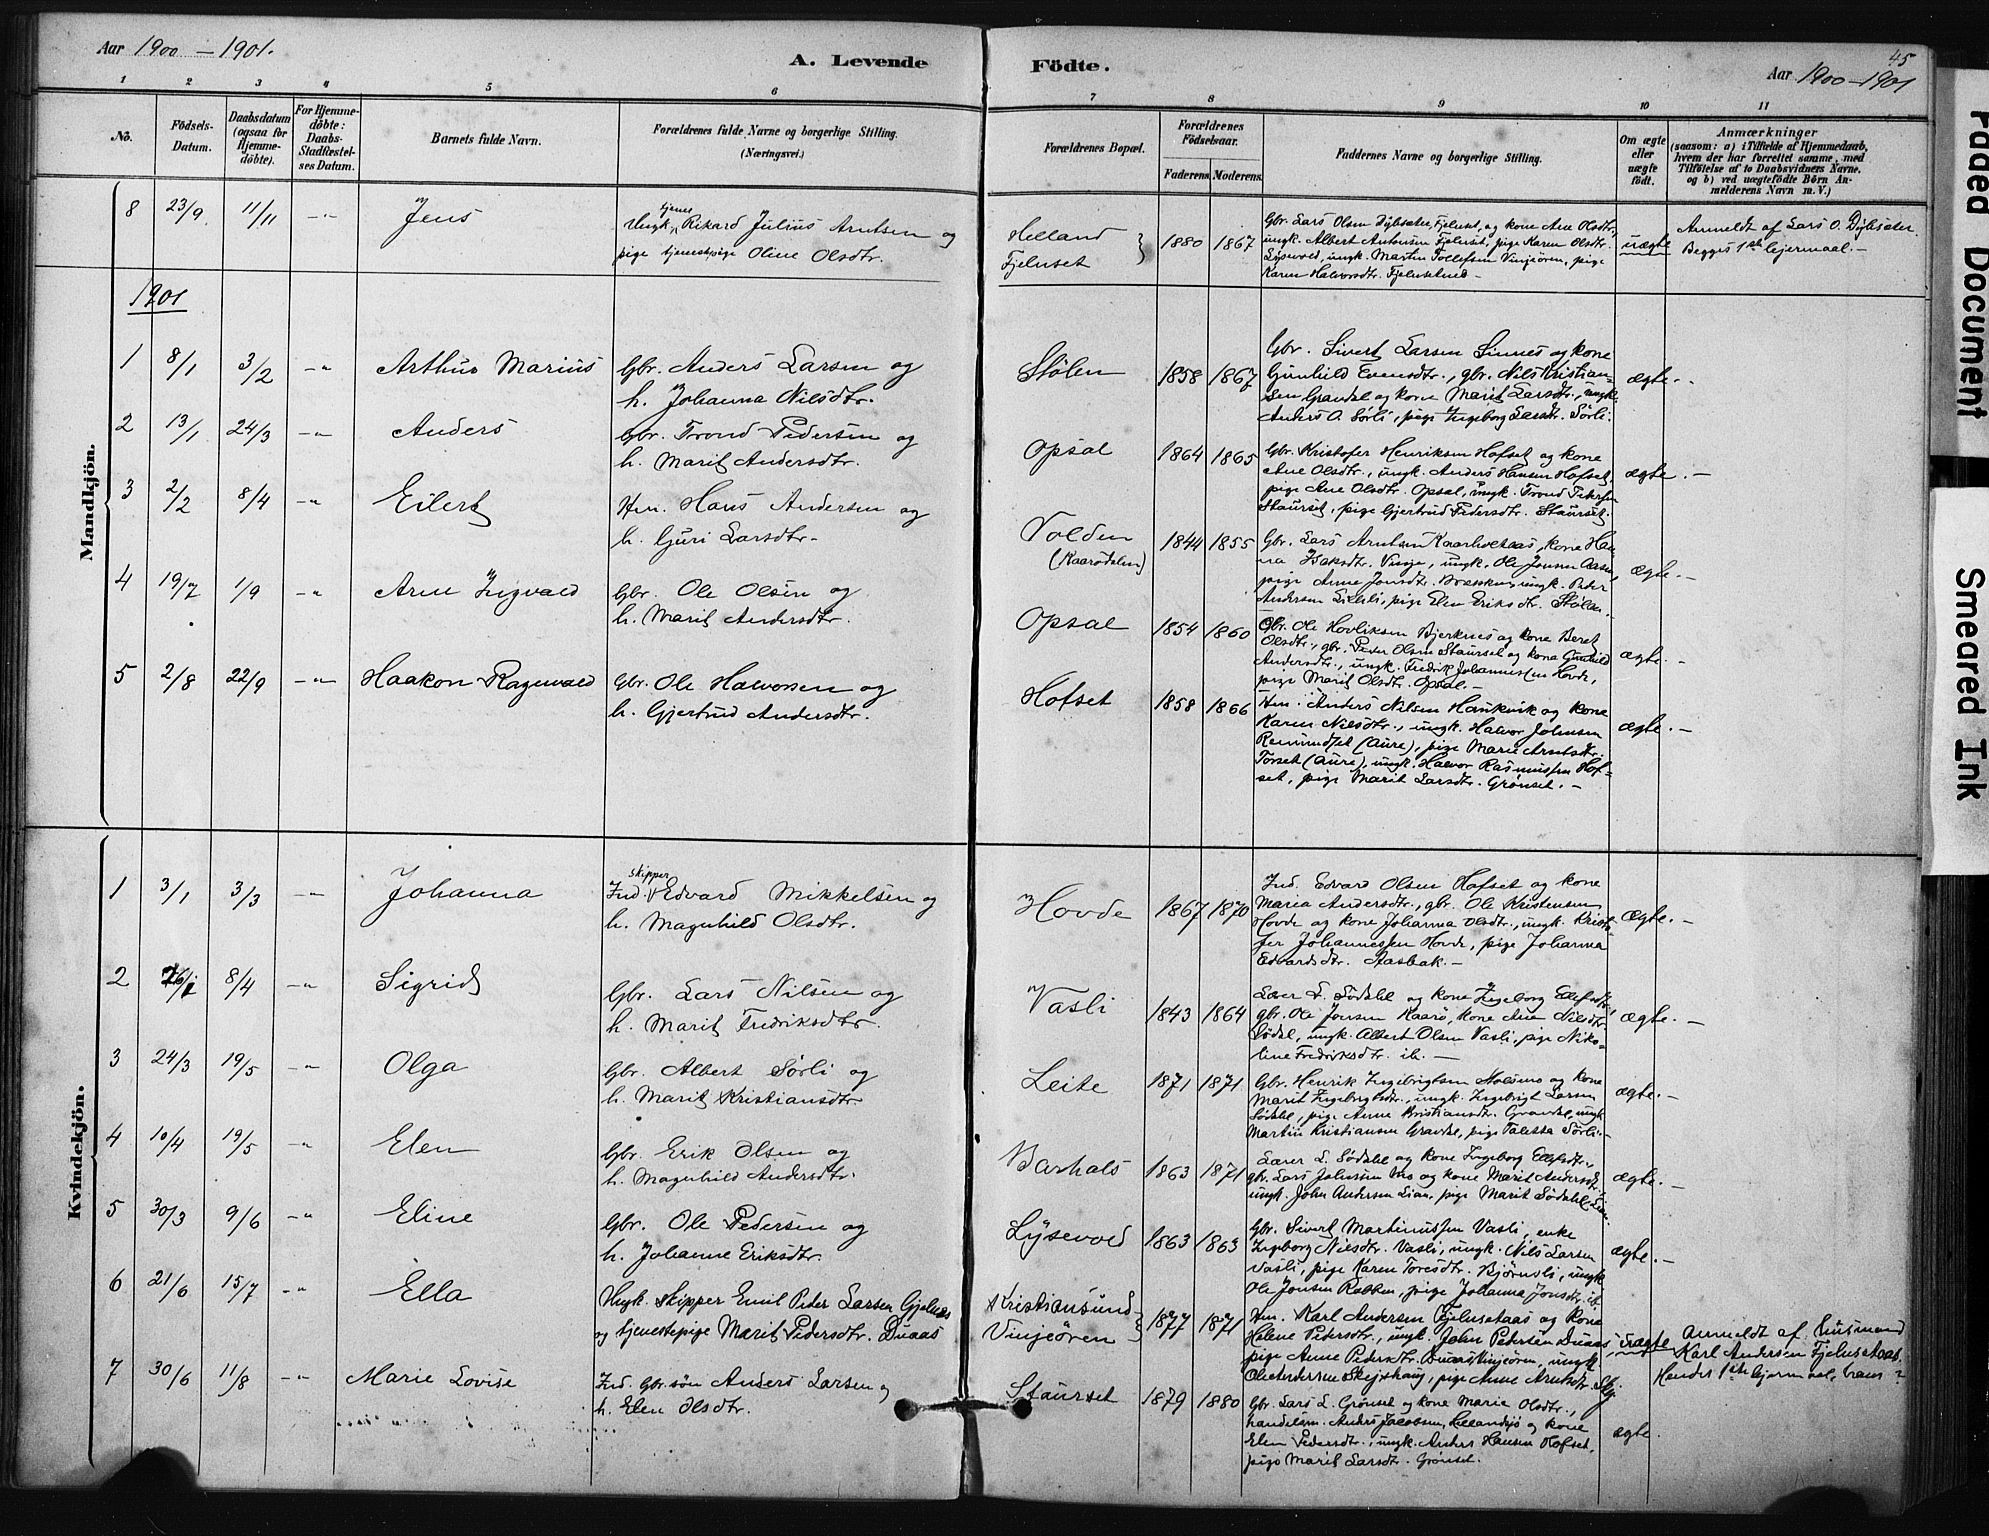 Aar 1900 – 1901.
A. Levende
1 2 3 4 5 6
No.
Födsels-
Datum.
Daabsdatum
(ogsaa for
Hjemme-
döbte).
For Hjemme-
döbte:
Daabs-
Stadfæstel-
ses Datum.
Barnets fulde Navn.
Forældrenes fulde Navne og borgerlige Stilling.
(Næringsvei.)
8 23/9 11/11 -"- Jens
tjener
Ungk. Rikard Julius Arntsen og
pige tjenestepige Oline Olsdtr.
1901
Mandkjön.
1 8/1 3/2 -"- Arthur Marius Gbr. Anders Larsen og
h. Johanna Nilsdtr.
2 13/1 24/3 -"- Anders Gbr. Trond Pedersen og
h. Marit Andersdtr.
3 2/2 8/4 -"- Eilert Hm. Hans Andersen og
h. Guri Larsdtr.
4 19/7 1/9 -"- Arne Ingvald Gbr. Ole Olsen og
h. Marit Andersdtr.
5 2/8 22/9 -"- Haakon Ragnvald Gbr. Ole Halvorsen og
h. Gjertrud Andersdtr.
Kvindekjön.
skipper
1 3/1 3/3 -"- Johanna Ind. Edvard Mikkelsen og
h. Magnhild Olsdtr.
2 26/1 8/4 -"- Sigrid Gbr. Lars Nilsen og
h. Marit Fredriksdtr.
3 24/3 19/5 -"- Olga Gbr. Albert Sörli og
h. Marit Kristiansdtr.
4 10/4 19/5 -"- Elen Gbr. Erik Olsen og
h. Magnhild Andersdtr.
5 30/3 9/6 -"- Eline Gbr. Ole Pedersen og
h. Johanne Eriksdtr.
6 21/6 15/7 -"- Ella Ungk. skipper Emil Peder Larsen Gjelnes
og tjenestepige Marit Pedersdtr. Duaas
7 30/6 11/8 -"- Marie Lovise Ind. Gbr. sön Anders Larsen og
h. Elen Olsdtr.
Födte.
45
Aar 1900–1901
7 8 9 10 11
Forældrenes Bopæl.
Forældrenes
Födselsaar.
Faderens. Moderens.
Faddernes Navne og borgerlige Stilling.
Om ægte
eller
uægte
födt.
Anmærkninger
(saasom: a) i Tilfælde af Hjemmedaab,
hvem der har forrettet samme, med
Tilföielse af to Daabsvidners Navne.
og b) ved uægtefödte Börn An-
melderens Navn m. V.)
Helland
Fjelnset } 1880 1867
Gbr. Lars Olsen Dybsæter, Fjelnset, og kone Ane Olsdtr.,
ungk. Albert Antonsen Fjelnset, pige Karen Olsdtr.
Lysevold, ungk. Martin Tollefsen Vinjeören, pige
Karen Halvorsdtr. Fjelnset
uægte
Anmeldt af Lars O. Dybsæter.
Begges 1ste leiermaal. –
Stölen 1858 1867
Gbr. Sivert Larsen Sinnes og kone
Gunhild Evensdtr., gbr. Nils Kristian-
sen Gravdal og kone Marit Larsdtr., ungk.
Anders A. Sörli, pige Ingeborg Larsdtr. Sörli.
ægte. –
Opsal 1864 1865
Gbr. Kristofer Henriksen Hofset og kone
Ane Olsdtr., ungk. Anders Hansen Hofset,
pige Ane Olsdtr. Opsal, ungk. Trond Petersen
Staurset, pige Gjertrud Pedersdtr. Staurset.
ægte. –
Volden
(Kaarödalen) 1844 1855
Gbr. Lars Arntsen Kaarholtaas, kone Han-
na Isaksdtr. Vinje, ungk. Ole Jonsen Aasen,
pige Anne Jonsdtr. ungk. Peder
Andersen pige Elen Eriksdtr. Stölen.
ægte. –
Opsal 1854 1860
Gbr. Ole Hovliksen Bjerknes og kone Beret
Olsdtr., gbr. Peder Olsen Staurset og kone Gunhild
Andersdtr., ungk. Fredrik Johannessen Hovde,
pige Marit Olsdtr. Opsal. –
ægte. –
Hofset 1858 1866
Hm. Anders Nilsen Haukvik og kone
Karen Nilsdtr., ungk. Halvor Johnsen
Reinmedset (Aure), pige Marie Arntsdtr.
Torset (Aure), ungk. Halvor Rasmussen Hof-
set, pige Marit Larsdtr. Grönset. –
ægte. –
Hovde 1867 1870
Ind. Edvard Olsen Hofset og kone
Maria Andersdtr., gbr. Ole Kristensen
Hovde og kone Johanna Olsdtr., ungk. Kristo-
fer Johannessen Hovde, pige Johanna
Edvardsdtr. Aasbak. –
ægte. –
Vasli 1843 1864
Lærer L. Södahl og kone Ingeborg Ellefsdtr.,
gbr. Ole Jonsen Kaarö, kone Ane Nilsdtr.
Södal, ungk. Albert Olsen Vasli, pige Niko-
line Fredriksdtr. ib. –
ægte. –
Leite 1871 1871
Gbr. Henrik Ingebrigtsen Nolsmo og kone
Marit Ingebrigtsdtr., ungk. Ingebrigt Larsen
Södahl, pige Anne Kristiansdtr. Gravdal, ungk.
Martin Kristiansen Gravdal, pige Taletta Sörli. –
ægte. –
Barhals 1863 1871
Lærer L. Södahl og kone Ingeborg Ellefsdtr.,
gbr. Lars Johnsen Mo og kone Marit Andersdtr.,
ungk. John Andersen Lian, pige Marit Södahl
ægte. –
Lysevold 1863 1863
Gbr. Sivert Martinussen Vasli, enke
Ingeborg Nilsdtr. Vasli, ungk. Nils Larsen
Vasli, pige Karen Toresdtr. Björnsli, ungk
Ole Jonsen Rabben, pige Johanna Jonsdtr. ib
ægte. –
Kristiansund
Vinjeören } 1877 1871
Hm. Karl Andersen Fjelnsetaas og kone
Helene Pedersdtr., ungk. John Pedersen Duaas,
pige Anne Pedersdtr. Duaas Vinjeören, ungk.
Ole Andersen Skeishaug, pige Anne Arntsdtr. Skj.
uægte
Anmeldt af husmand
Karl Andersen Fjelnsetaas.
Hendes 1ste leiermaal, hans ?
Staurset 1879 1880
Gbr. Lars L. Grönset og kone Marie Olsdtr.,
handelsm. Anders Jacobsen, Hellandsjö og kone
Elen Pedersdtr., ungk. Anders Hansen Hofset,
pige Marit Larsdtr. Grönset.
ægte.
Faded Document
Smeared Ink